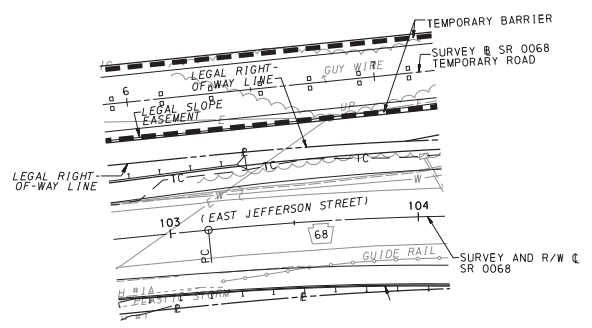 TEMPORARY BARRIER
SURVEY ℄ SR 0068
TEMPORARY ROAD
LEGAL RIGHT-
OF-WAY LINE
GUY WIRE
6
7
LEGAL SLOPE
EASEMENT
E
UP
E
LEGAL RIGHT-
OF-WAY LINE
TC
TC
TC
E
W
W
103
(EAST JEFFERSON STREET)
104
68
PC
GUIDE RAIL
SURVEY AND R/W ℄
SR 0068
H #1A
PLASTIC STORM
H #1